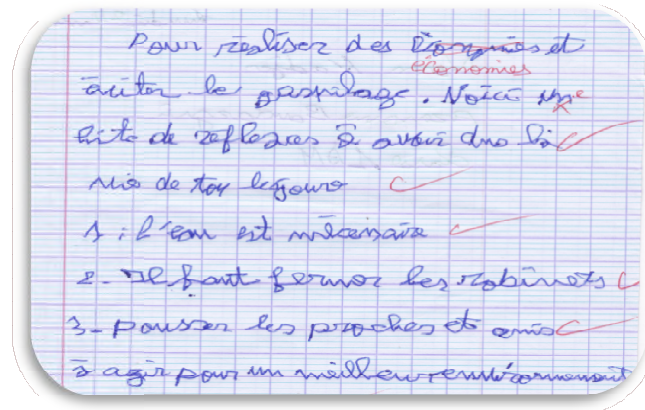 Pour réaliser des économies et
économies
éviter le gaspilage. Voici une
liste de reflexes à avoir dns la
vie de tou les jours
1 : l'eau est nécessaire
2 - Il faut fermer les robinets
3 - pousser les proches et amis
à agir pour un meilleur environnement